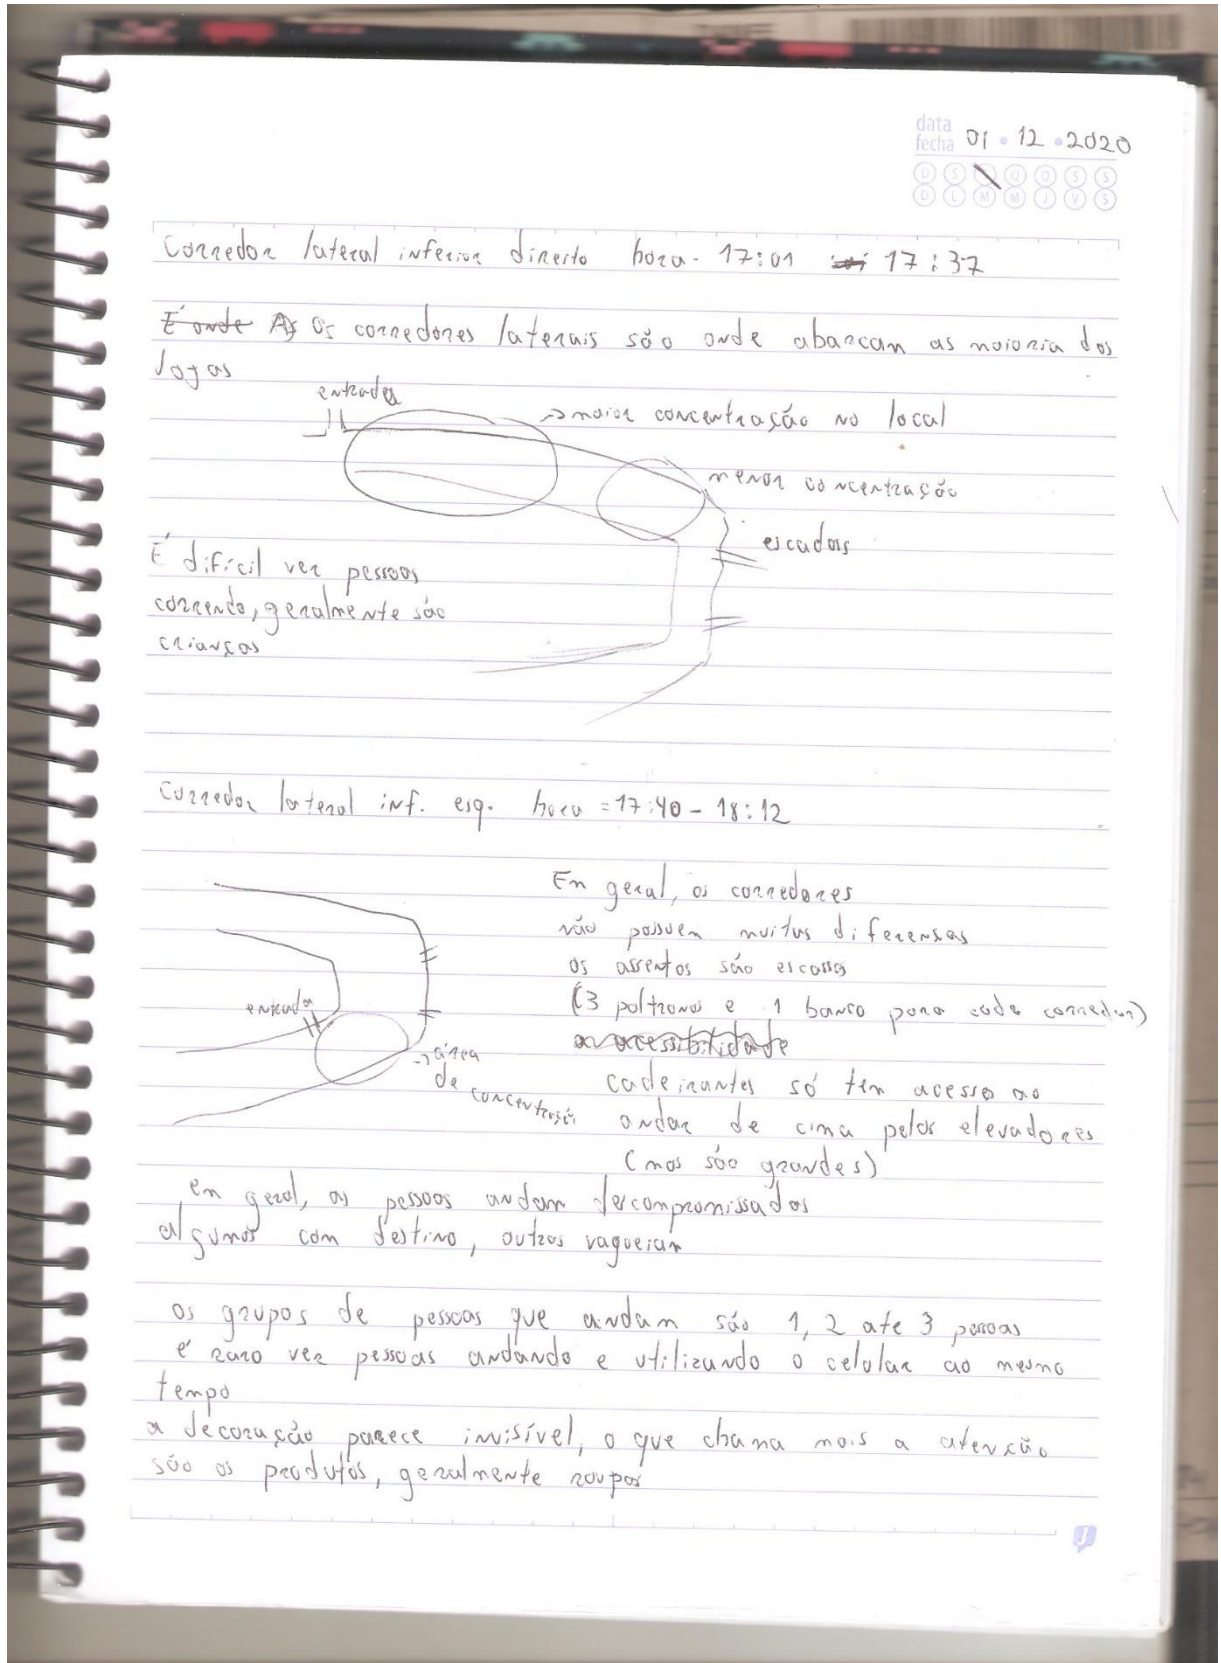 data
fecha 01 • 12 • 2020
D S Q Q S S
D L M M J V S
Corredor lateral inferior direito hora - 17:01 17:37
É onde As Os corredores laterais são onde abarcam as maioria dos
lojas
entrada
-> maior concentração no local
menor concentração
escadas
É difícil ver pessoas
correndo, geralmente são
crianças
Corredor lateral inf. esq. hora = 17:40 - 18:12
Em geral, os corredores
não possuem muitas diferensas
os assentos são escassos
(3 poltronas e 1 banco para cada corredor)
entrada
a acessibilidade
-> área
de concentração
cadeirantes só tem acesso ao
andar de cima pelos elevadores
(mas são grandes)
em geral, as pessoas andam descompromissadas
algumas com destino, outras vagueiam
os grupos de pessoas que andam são 1, 2 ate 3 pessoas
é raro ver pessoas andando e utilizando o celular ao mesmo
tempo
a decoração parece invisível, o que chama mais a atenção
são os produtos, geralmente roupas